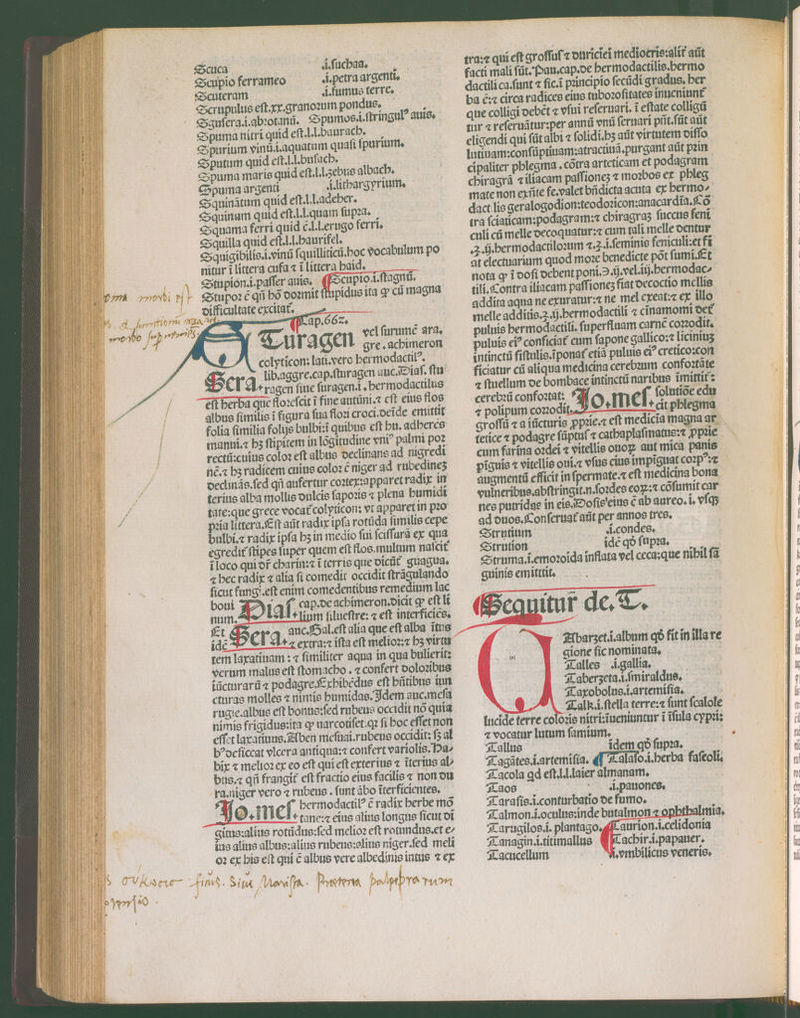 Scuca .i.suchaa.
Scupio ferrameo .i.petra argenti.
Scuteram .i.fumus terre.
Scrupulus est.xx.granorum pondus.
Sgusera.i.abrotanū. Spumos.i.stringulꝰ auis.
Spuma nitri quid est.l.l.baurach.
Spurium vinū.i.aquatum quasi spurium.
Sputum quid est.l.l.busach.
Spuma maris quid est.l.l.zebus albach.
Spuma argenti .i.lithargyrium.
Squinātum quid est.l.l.adcher.
Squinam quid est.l.l.quam supra.
Squama ferri quid ē.l.l.erugo ferri.
Squilla quid est.l.l.haurisel.
Squigibilis.i.vinū squilliticū.hoc vocabulum po
nitur ī littera cusa ⁊ ī littera haid.
Stupion.i.passer auis. Scupio.i.stagnū.
Stupor ē qñ hō dormit stupidus ita ꝙ cū magna
difficultate excitat̄.
Cap.662.
Sturagen vel surumē ara.
gre.achimeron
colyticon: lati.vero hermodactilꝰ.
Sera. lib.aggre.cap.sturagen auc.Dias. stu
ragen siue suragen.i.hermodactilus
est herba que florescit ī fine autūni.⁊ est eius flos
albus similis ī figura sua flori croci.deīde emittit
folia similia folijs bulbi:ī quibus est hu. adheres
manui.⁊ hz stipitem in lōgitudine vniꝰ palmi por
rectū:cuius color est albus declinans ad nigredi
nē.⁊ hz radicem cuius color ē niger ad rubedinez
declinās.sed qñ aufertur cortex:apparet radix in
terius alba mollis dulcis saporis ⁊ plena humidi
tate:que grece vocat̄ colyticon: vt apparet in pro
pria littera.Est aūt radix ipsa rotūda similis cepe
bulbi.⁊ radix ipsa hz in medio sui scissurā ex qua
egredit̄ stipes super quem est flos.multum nascit̄
ī loco qui dr̄ charin:⁊ ī terris que dicūt̄ guagua.
⁊ hec radix ⁊ alia si comedit̄ occidit strāgulando
sicut fungi.est enim comedentibus remedium lac
boui
num. Dias. cap.de achimeron.dicit ꝙ est li
lium siluestre: ⁊ est interficiēs.
Et
idē Sera. auc.Gal.est alia que est alba ītus
⁊ extra:⁊ ista est melior:⁊ hz virtu
tem laxatiuam : ⁊ similiter aqua in qua bulierit:
verum malus est stomacho . ⁊ confert doloribus
iūcturarū ⁊ podagre.Exhibēdus est hñtibus iun
cturas molles ⁊ nimis humidas.Idem auc.mesa
rugie.albus est bonus:sed rubeus occidit nō quia
nimis frigidus:ita ꝙ narcotiset.qz si hoc esset non
esset laxatiuus.Aben mesuai.rubeus occidit: sz al
bꝰ deficcat vlcera antiqua:⁊ confert variolis.Ra-
bix ⁊ melior ex eo est qui est exterius ⁊ īterius al-
bus.⁊ qñ frangit̄ est fractio eius facilis ⁊ non du
ra.niger vero ⁊ rubeus . sunt ābo īterficientes.
Jo.mes. hermodactilꝰ ē radix herbe mō
tane:⁊ eius alius longus sicut di
gitus:alius rotūdus:sed melior est rotundus.et e-
ius alius albus:alius rubeus:alius niger.sed meli
or ex his est qui ē albus vere albedinis intus ⁊ ex
tra:⁊ qui est grossus ⁊ duriciei mediocris:alit̄ aūt
facti mali sūt. Pau.cap.de hermodactilis.hermo
dactili ca.sunt ⁊ sic.ī principio secūdi gradus. her
ba ē:⁊ circa radices eius tuborositates inueniunt̄
que colligi debēt ⁊ vsui reseruari. ī estate colligū
tur ⁊ reseruātur:per annū vnū seruari pñt.sūt aūt
eligendi qui sūt albi ⁊ solidi.hz aūt virtutem disso
lutiuam:consūptiuam:atractiuā.purgant aūt prin
cipaliter phlegma . cōtra arteticam et podagram
chiragrā ⁊ iliacam passionez ⁊ morbos ex phleg
mate non exñte fe.valet bñdicta acuta ex hermo-
dact̄ lio geralogodion:teodoricon:anacardīa.Cō
tra sciaticam:podagram:⁊ chiragraz succus feni
culi cū melle decoquatur:⁊ cum tali melle dentur
.ʒ.ij.hermodactilorum ⁊.ʒ.i.seminis feniculi:et fi
at electuarium quod more benedicte pōt sumi.Et
nota ꝙ ī dosi debent poni.Э.ij.vel.iij.hermodac-
tili.Contra iliacam passionez fiat decoctio mellis
addita aqua ne exuratur:⁊ ne mel exeat:⁊ ex illo
melle additis.ʒ.ij.hermodactili ⁊ cinamomi det̄
puluis hermodactili. superfluam carnē corrodit.
puluis eiꝰ conficiat̄ cum sapone gallico:⁊ liciniuz
intinctū fistulis.īponat̄ etiā puluis eiꝰ cretico:con
ficiatur cū aliqua medicina cerebrum confortāte
⁊ stuellum de bombace intinctū naribus īmittit̄:
cerebrū confortat: Jo.mes. solutiōe edu
⁊ polipum corrodit. cit phlegma
grossū ⁊ a iūcturis ꝓprie.⁊ est medicīa magna ar
tetice ⁊ podagre sūptuꝰ ⁊ cathaplasmatus:⁊ ꝓprie
cum farina ordei ⁊ vitellis ouorū aut mica panis
pīguis ⁊ vitellis oui.⁊ vsus eius impīguat corpꝰ:⁊
augmentū efficit in spermate.⁊ est medicina bona
vulneribus.abstringit.n.sordes eorū:⁊ cōsumit car
nes putridas in eis.Dosisꝰeius ē ab aureo.i. vsqz
ad duos.Conseruat̄ aūt per annos tres.
Strutium .i.condes.
Strution idē qd̄ supra.
Struma.i.emoroida īflata vel ceca:que nihil sā
guinis emittit.
Sequitur de.T.
TAbarzet.i.album qd̄ fit in illa re
gione sic nominata.
Talles .i.gallia.
Taberzeta.i.smiraldus.
Taxobolus.i.artemisia.
Talk.i.stella terre:⁊ sunt scalole
lucide terre coloris nitri:iueniuntur ī īsula cypri:
⁊ vocatur lutum samium.
Tallus idem qd̄ supra.
Tagātes.i.artemisia. Talaso.i.herba faseoli.
Tacola qd est.l.l.laier almanam.
Taos .i.pauones.
Tarasis.i.conturbatio de fumo.
Talmon.i.oculus:inde butalmon ⁊ ophthalmia.
Tarugilos.i. plantago. Taurion.i.celidonia
Tanagin.i.titimallus Tachir.i.papauer.
Tacucellum .i.vmbilicus veneris.